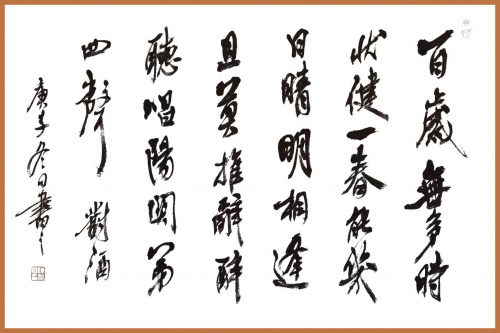 百歲無多時
壯健一春能幾
日晴明相逢
且莫推辭醉
聽唱陽關第
四聲 對酒
庚子冬日書